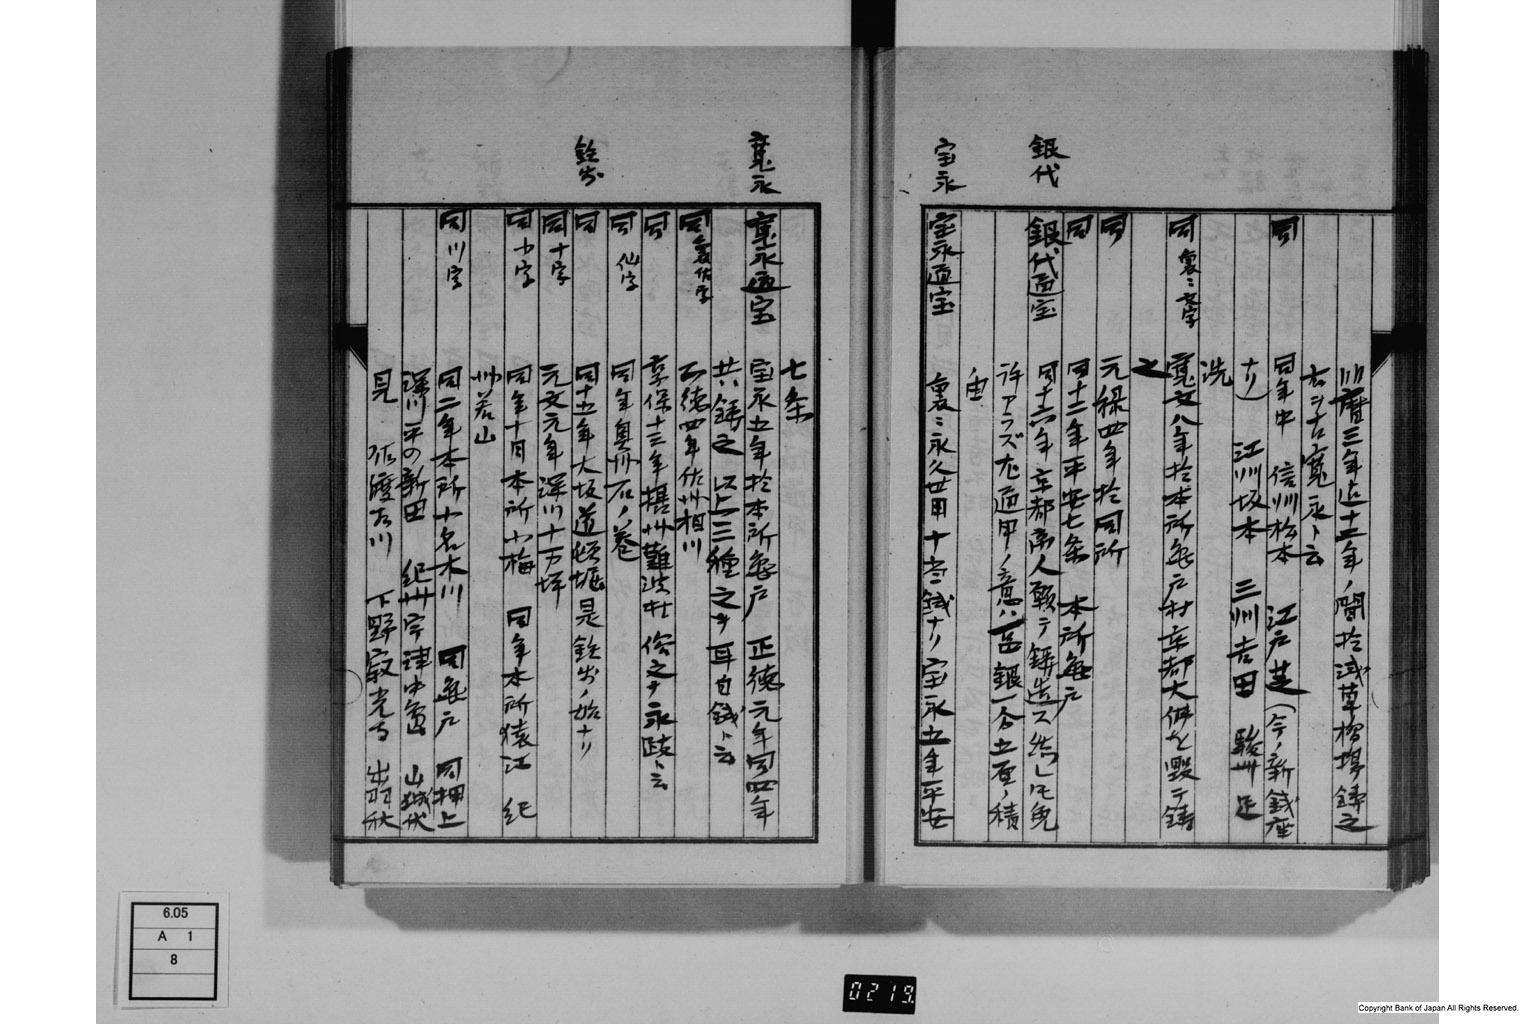 明暦三年迄十二年ノ間於浅草橋場鋳之
古ニ古寛永ト云
同 同年中 信州松本 江戸芝(今ノ新銭座
ナリ) 江州坂本 三州吉田 駿州
同 裏ニ文字 寛文八年於本所亀戸村京都大仏ヲ毀テ鋳
之
同 元禄四年於同所
同 同十二年平安七条 本所亀戸
銀代
銀代通宝 同十六年京都商人願テ鋳造ス然レ𪜈免
許アラズ 通用ノ意ハ 銀一分五厘ノ積
由
宝永
宝永通宝 裏ニ永久世用 十当銭ナリ 宝永五年平安
七条
寛永
寛永通宝 宝永五年於本所亀戸 正徳元年同四年
共ハ鋳之 以上三種之ヲ耳白銭ト云
同 裏佐字 正徳四年佐州相川
同 享保十三年摂州難波 俗之ヲ永 ト云
同 仙字 同年奥州石ノ巻
鉄銭
同 同十五年大坂道頓堀是鉄 ノ始ナリ
同 十字 元文元年深川十万坪
同 小字 同年十月本所小梅 同年本所猿江 紀
州若山
同 川字 同二年本所十名木川 同亀戸 同押上
深川平の新田 紀州宇津 山城伏
見 佐渡相川 下野 光 出羽秋
6.05
A 1
8
0219.
Copyright Bank of Japan All Rights Reserved.